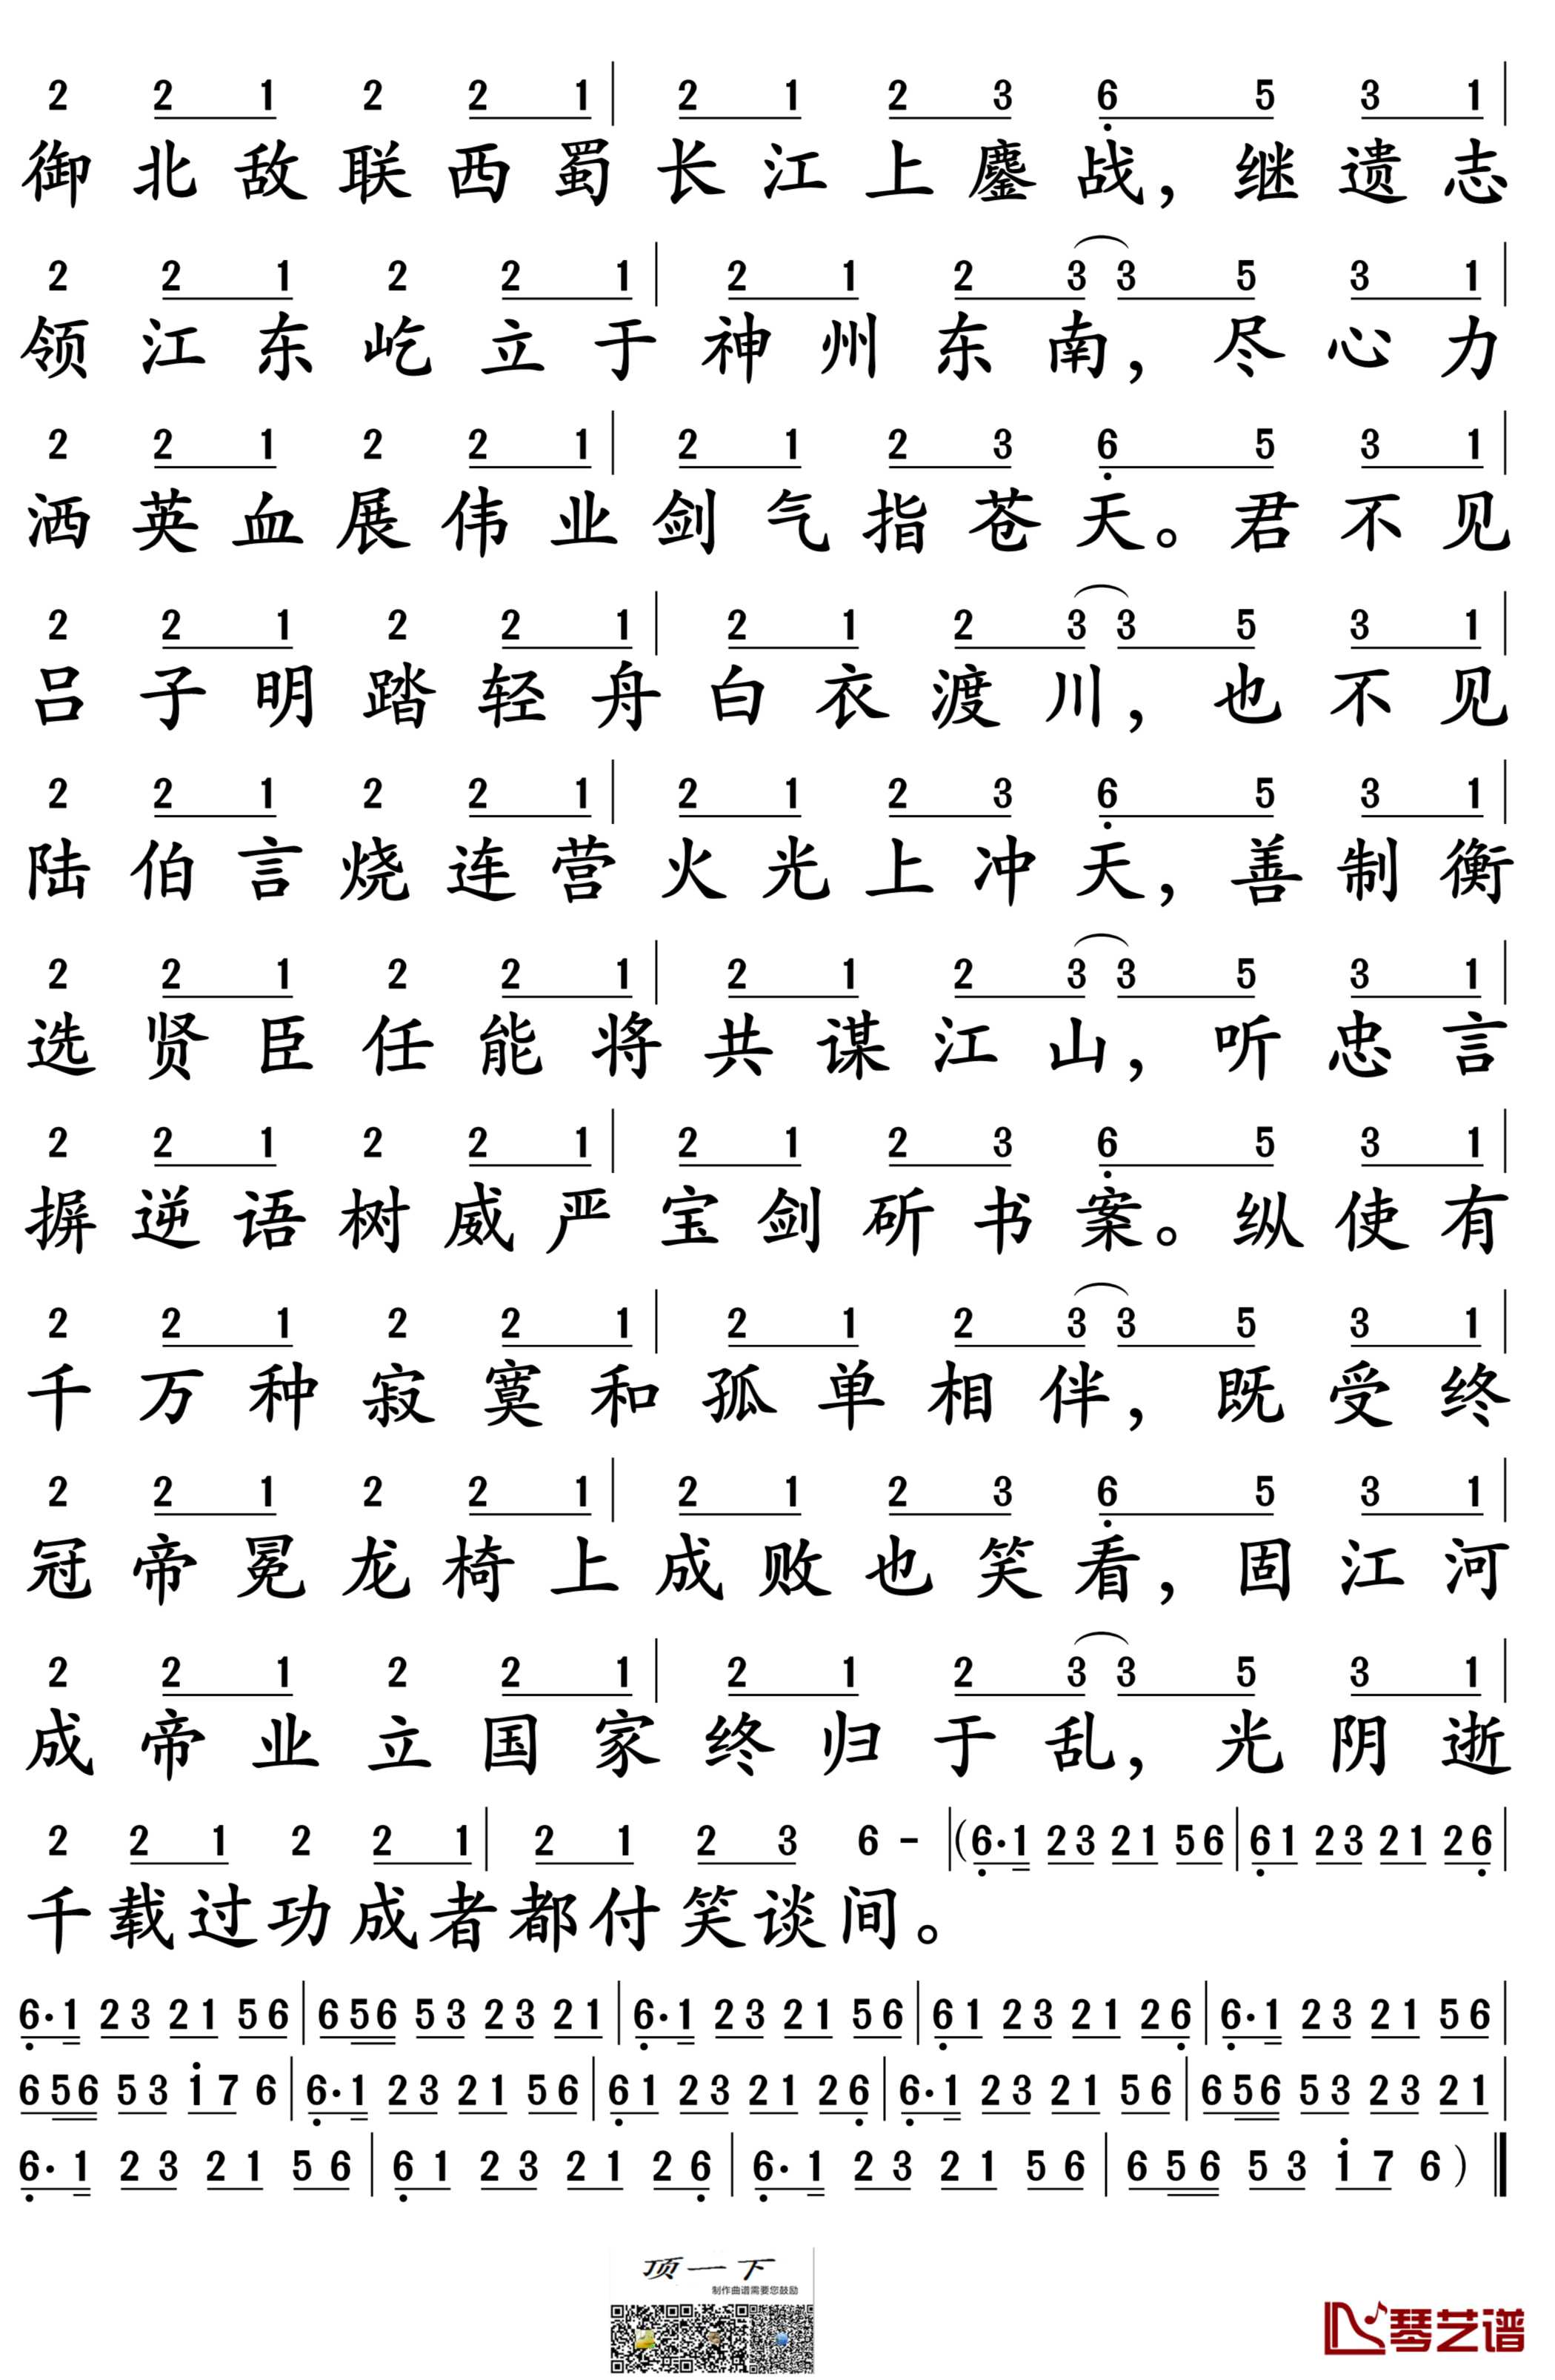 2 2 1 2 2 1 | 2 1 2 3 6 5 3 1 |
御北敌联西蜀长江上鏖战，继遗志
2 2 1 2 2 1 | 2 1 2 3 3 5 3 1 |
领江东屹立于神州东南，尽心力
2 2 1 2 2 1 | 2 1 2 3 6 5 3 1 |
洒英血展伟业剑气指苍天。君不见
2 2 1 2 2 1 | 2 1 2 3 3 5 3 1 |
吕子明踏轻舟白衣渡川，也不见
2 2 1 2 2 1 | 2 1 2 3 6 5 3 1 |
陆伯言烧连营火光上冲天，善制衡
2 2 1 2 2 1 | 2 1 2 3 3 5 3 1 |
选贤臣任能将共谋江山，听忠言
2 2 1 2 2 1 | 2 1 2 3 6 5 3 1 |
摒逆语树威严宝剑斫书案。纵使有
2 2 1 2 2 1 | 2 1 2 3 3 5 3 1 |
千万种寂寞和孤单相伴，既受终
2 2 1 2 2 1 | 2 1 2 3 6 5 3 1 |
冠帝冕龙椅上成败也笑看，固江河
2 2 1 2 2 1 | 2 1 2 3 3 5 3 1 |
成帝业立国家终归于乱，光阴逝
2 2 1 2 2 1 | 2 1 2 3 6 - | (6·1 23 21 56 | 61 23 21 26 |
千载过功成者都付笑谈间。
6·1 23 21 56 | 656 53 23 21 | 6·1 23 21 56 | 61 23 21 26 | 6·1 23 21 56 |
656 53 i7 6 | 6·1 23 21 56 | 61 23 21 26 | 6·1 23 21 56 | 656 53 23 21 |
6·1 23 21 56 | 61 23 21 26 | 6·1 23 21 56 | 656 53 i7 6 ) ‖
顶一下
制作曲谱需要您鼓励
琴艺谱